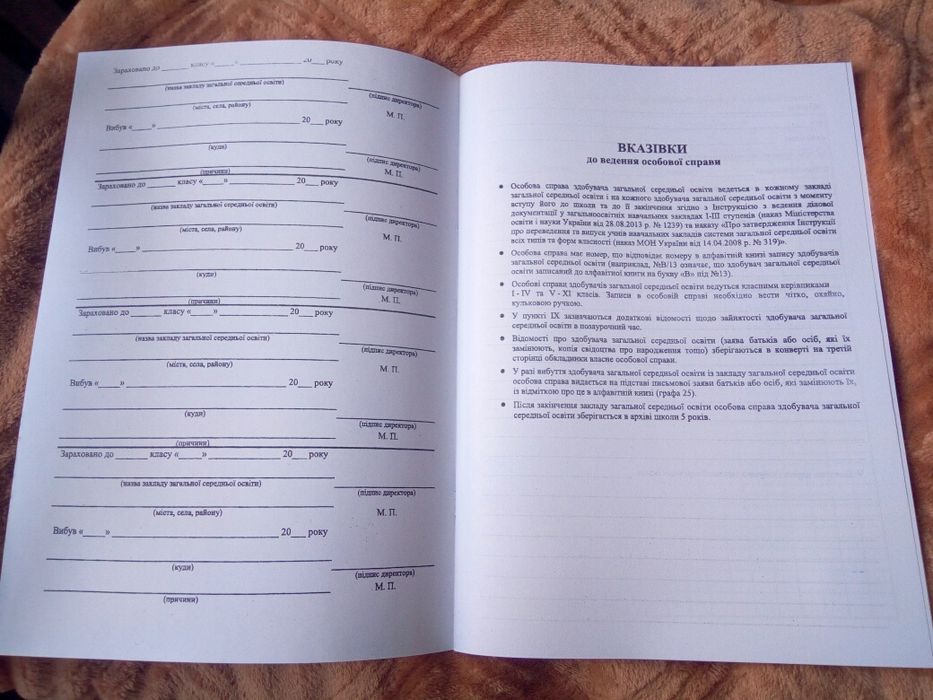 Зараховано до _______ класу «_____» ______________ 20___ року
(назва закладу загальної середньої освіти)
(підпис директора)
(міста, села, району)
М. П.
Вибув «_____» ______________ 20___ року
(куди)
(підпис директора)
(причини)
М. П.
Зараховано до _______ класу «_____» ______________ 20___ року
(назва закладу загальної середньої освіти)
(підпис директора)
(міста, села, району)
М. П.
Вибув «_____» ______________ 20___ року
(куди)
(підпис директора)
(причини)
М. П.
Зараховано до _______ класу «_____» ______________ 20___ року
(назва закладу загальної середньої освіти)
(підпис директора)
(міста, села, району)
М. П.
Вибув «_____» ______________ 20___ року
(куди)
(підпис директора)
(причини)
М. П.
Зараховано до _______ класу «_____» ______________ 20___ року
(назва закладу загальної середньої освіти)
(підпис директора)
(міста, села, району)
М. П.
Вибув «_____» ______________ 20___ року
(куди)
(підпис директора)
М. П.
(причини)
ВКАЗІВКИ
до ведення особової справи
● Особова справа здобувача загальної середньої освіти ведеться в кожному закладі
загальної середньої освіти і на кожного здобувача загальної середньої освіти з моменту
вступу його до школи та до її закінчення згідно з Інструкцією з ведення ділової
документації у загальноосвітніх навчальних закладах I-III ступенів (наказ Міністерства
освіти і науки України від 28.08.2013 р. № 1239) та наказу «Про затвердження Інструкції
про переведення та випуск учнів навчальних закладів системи загальної середньої освіти
всіх типів та форм власності (наказ МОН України від 14.04.2008 р. № 319)».
● Особова справа має номер, що відповідає номеру в алфавітній книзі запису здобувачів
загальної середньої освіти (наприклад, №В/13 означає, що здобувач загальної середньої
освіти записаний до алфавітної книги на букву «В» під №13).
● Особові справи здобувачів загальної середньої освіти ведуться класними керівниками
I - IV та V - XI класів. Записи в особовій справі необхідно вести чітко, охайно,
кульковою ручкою.
● У пункті IX зазначаються додаткові відомості щодо зайнятості здобувача загальної
середньої освіти в позаурочний час.
● Відомості про здобувача загальної середньої освіти (заява батьків або осіб, які їх
замінюють, копія свідоцтва про народження тощо) зберігаються в конверті на третій
сторінці обкладинки власне особової справи.
● У разі вибуття здобувача загальної середньої освіти із закладу загальної середньої освіти
особова справа видається на підставі письмової заяви батьків або осіб, які замінюють їх,
із відміткою про це в алфавітній книзі (графа 25).
● Після закінчення закладу загальної середньої освіти особова справа здобувача загальної
середньої освіти зберігається в архіві школи 5 років.